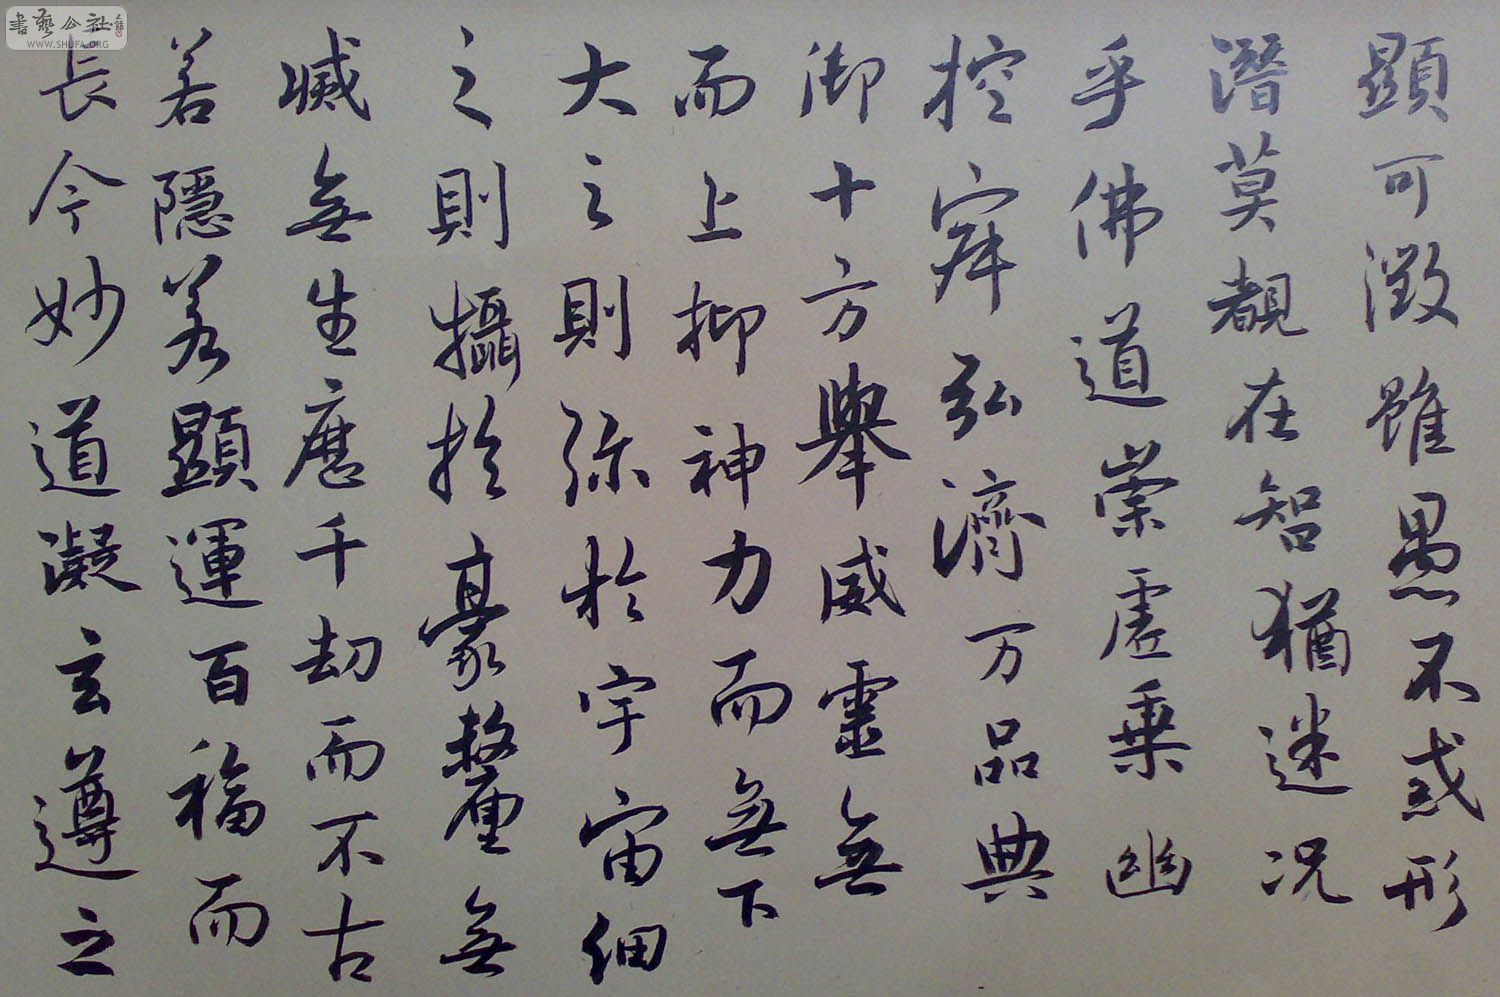 顯可徵雖愚不惑形
潛莫覩在智猶迷况
乎佛道崇虛乗幽
控寂弘濟万品典
御十方舉威靈無
而上抑神力而無下
大之則弥於宇宙細
之則攝於豪釐無
滅無生歷千劫而不古
若隱若顯運百福而
長今妙道凝玄遵之
書藝公社
WWW.SHUFA.ORG